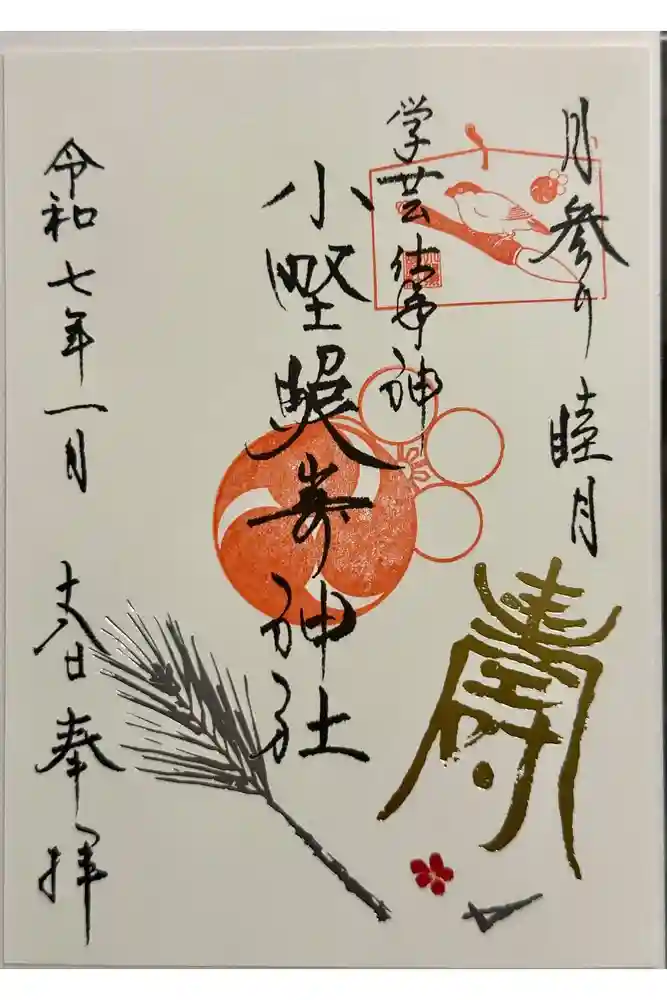 月参り 睦月
学芸仕事神
小野照崎神社
令和七年一月 日 奉拝
壽